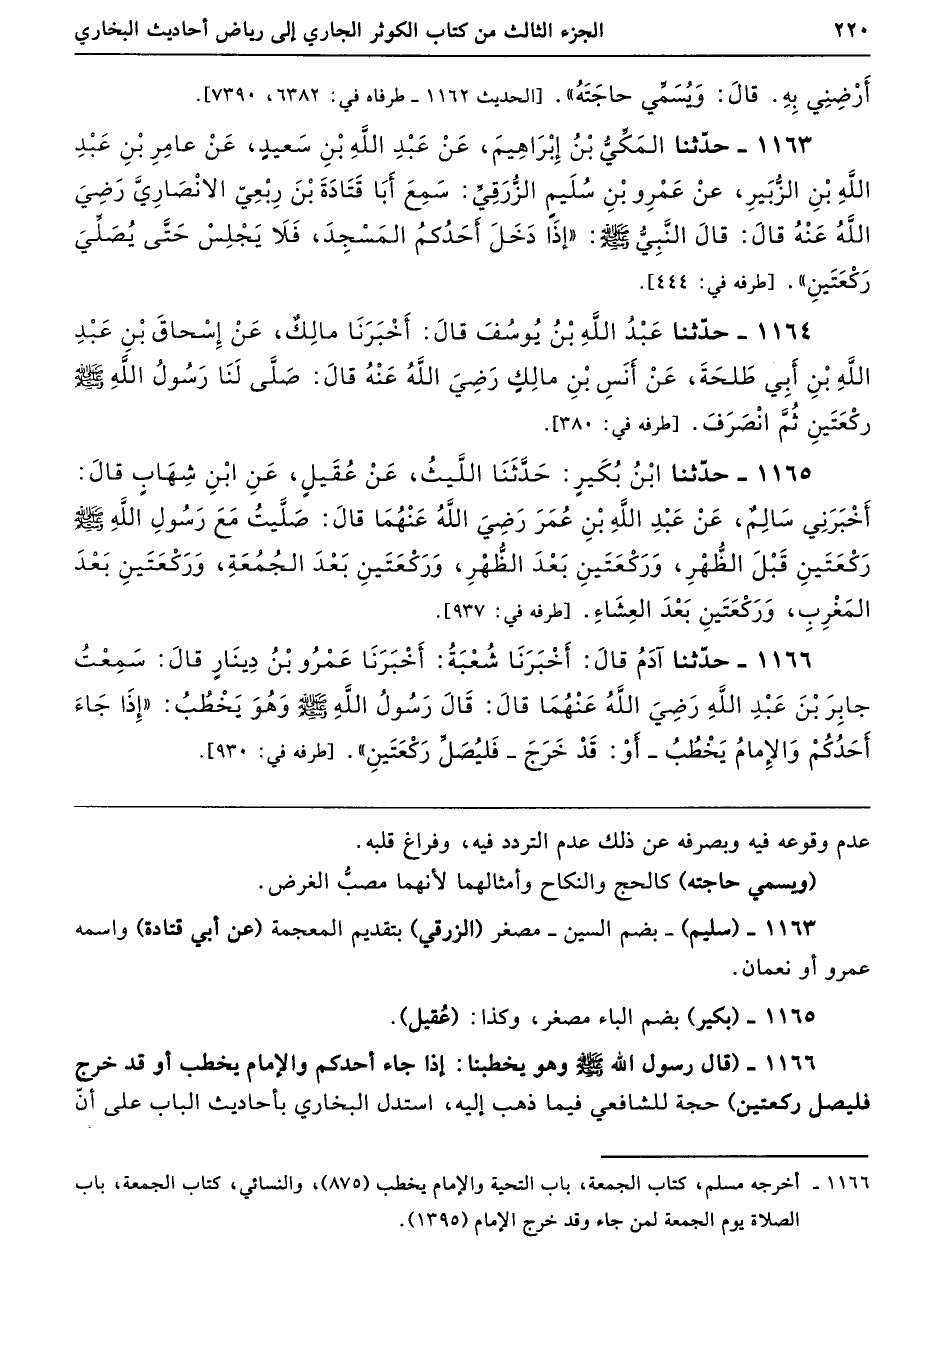 ٢٢٠ الجزء الثالث من كتاب الكوثر الجاري إلى رياض أحاديث البخاري
أَرْضِنِي بِهِ. قالَ: وَيُسَمِّي حاجَتَهُ». [الحديث ١١٦٢ ـ طرفاه في: ٦٣٨٢، ٧٣٩٠].
١١٦٣ ـ حدّثنا المَكِّيُّ بْنُ إِبْرَاهِيمَ، عَنْ عَبْدِ اللَّهِ بْنِ سَعيدٍ، عَنْ عامِرِ بْنِ عَبْدِ
اللَّهِ بْنِ الزُّبَيرِ، عنْ عَمْرِو بْنِ سُلَيمٍ الزُّرَقِيِّ: سَمِعَ أَبَا قَتَادَةَ بْنَ رِبْعِيّ الانْصَارِيَّ رَضِيَ
اللَّهُ عَنْهُ قالَ: قالَ النَّبِيُّ ﷺ: «إِذَا دَخَلَ أَحَدُكمُ المَسْجِدَ، فَلَا يَجْلِسْ حَتَّى يُصَلِّيَ
رَكْعَتَينِ». [طرفه في: ٤٤٤].
١١٦٤ ـ حدّثنا عَبْدُ اللَّهِ بْنُ يُوسُفَ قالَ: أَخْبَرَنَا مالِكٌ، عَنْ إِسْحاقَ بْنِ عَبْدِ
اللَّهِ بْنِ أَبِي طَلحَةَ، عَنْ أَنَسِ بْنِ مالِكٍ رَضِيَ اللَّهُ عَنْهُ قالَ: صَلَّى لَنَا رَسُولُ اللَّهِ ﷺ
رَكْعَتَينِ ثُمَّ انْصَرَفَ. [طرفه في: ٣٨٠].
١١٦٥ ـ حدّثنا ابْنُ بُكَيرٍ: حَدَّثَنَا اللَّيثُ، عَنْ عُقَيلٍ، عَنِ ابْنِ شِهَابٍ قالَ:
أَخْبَرَنِي سَالِمٌ، عَنْ عَبْدِ اللَّهِ بْنِ عُمَرَ رَضِيَ اللَّهُ عَنْهُمَا قالَ: صَلَّيتُ مَعَ رَسُولِ اللَّهِ ﷺ
رَكْعَتَينِ قَبْلَ الظُّهْرِ، وَرَكْعَتَينِ بَعْدَ الظُّهْرِ، وَرَكْعَتَينِ بَعْدَ الجُمُعَةِ، وَرَكْعَتَينِ بَعْدَ
المَغْرِبِ، وَرَكْعَتَينِ بَعْدَ العِشَاءِ. [طرفه في: ٩٣٧].
١١٦٦ ـ حدّثنا آدَمُ قالَ: أَخْبَرَنَا شُعْبَةُ: أَخْبَرَنَا عَمْرُو بْنُ دِينَارٍ قالَ: سَمِعْتُ
جابِرَ بْنَ عَبْدِ اللَّهِ رَضِيَ اللَّهُ عَنْهُمَا قالَ: قَالَ رَسُولُ اللَّهِ ﷺ وَهُوَ يَخْطُبُ: «إِذَا جَاءَ
أَحَدُكُمْ وَالإِمامُ يَخْطُبُ ـ أَوْ: قَدْ خَرَجَ ـ فَليُصَلِّ رَكْعَتَينِ». [طرفه في: ٩٣٠].
عدم وقوعه فيه وبصرفه عن ذلك عدم التردد فيه، وفراغ قلبه.
(ويسمي حاجته) كالحج والنكاح وأمثالهما لأنهما مصبُّ الغرض.
١١٦٣ ـ (سليم) ـ بضم السين ـ مصغر (الزرقي) بتقديم المعجمة (عن أبي قتادة) واسمه
عمرو أو نعمان.
١١٦٥ ـ (بكير) بضم الباء مصغر، وكذا: (عُقيل).
١١٦٦ ـ (قال رسول الله ﷺ وهو يخطبنا: إذا جاء أحدكم والإمام يخطب أو قد خرج
فليصل ركعتين) حجة للشافعي فيما ذهب إليه، استدل البخاري بأحاديث الباب على أنّ
١١٦٦ ـ أخرجه مسلم، كتاب الجمعة، باب التحية والإمام يخطب (٨٧٥)، والنسائي، كتاب الجمعة، باب
الصلاة يوم الجمعة لمن جاء وقد خرج الإمام (١٣٩٥).